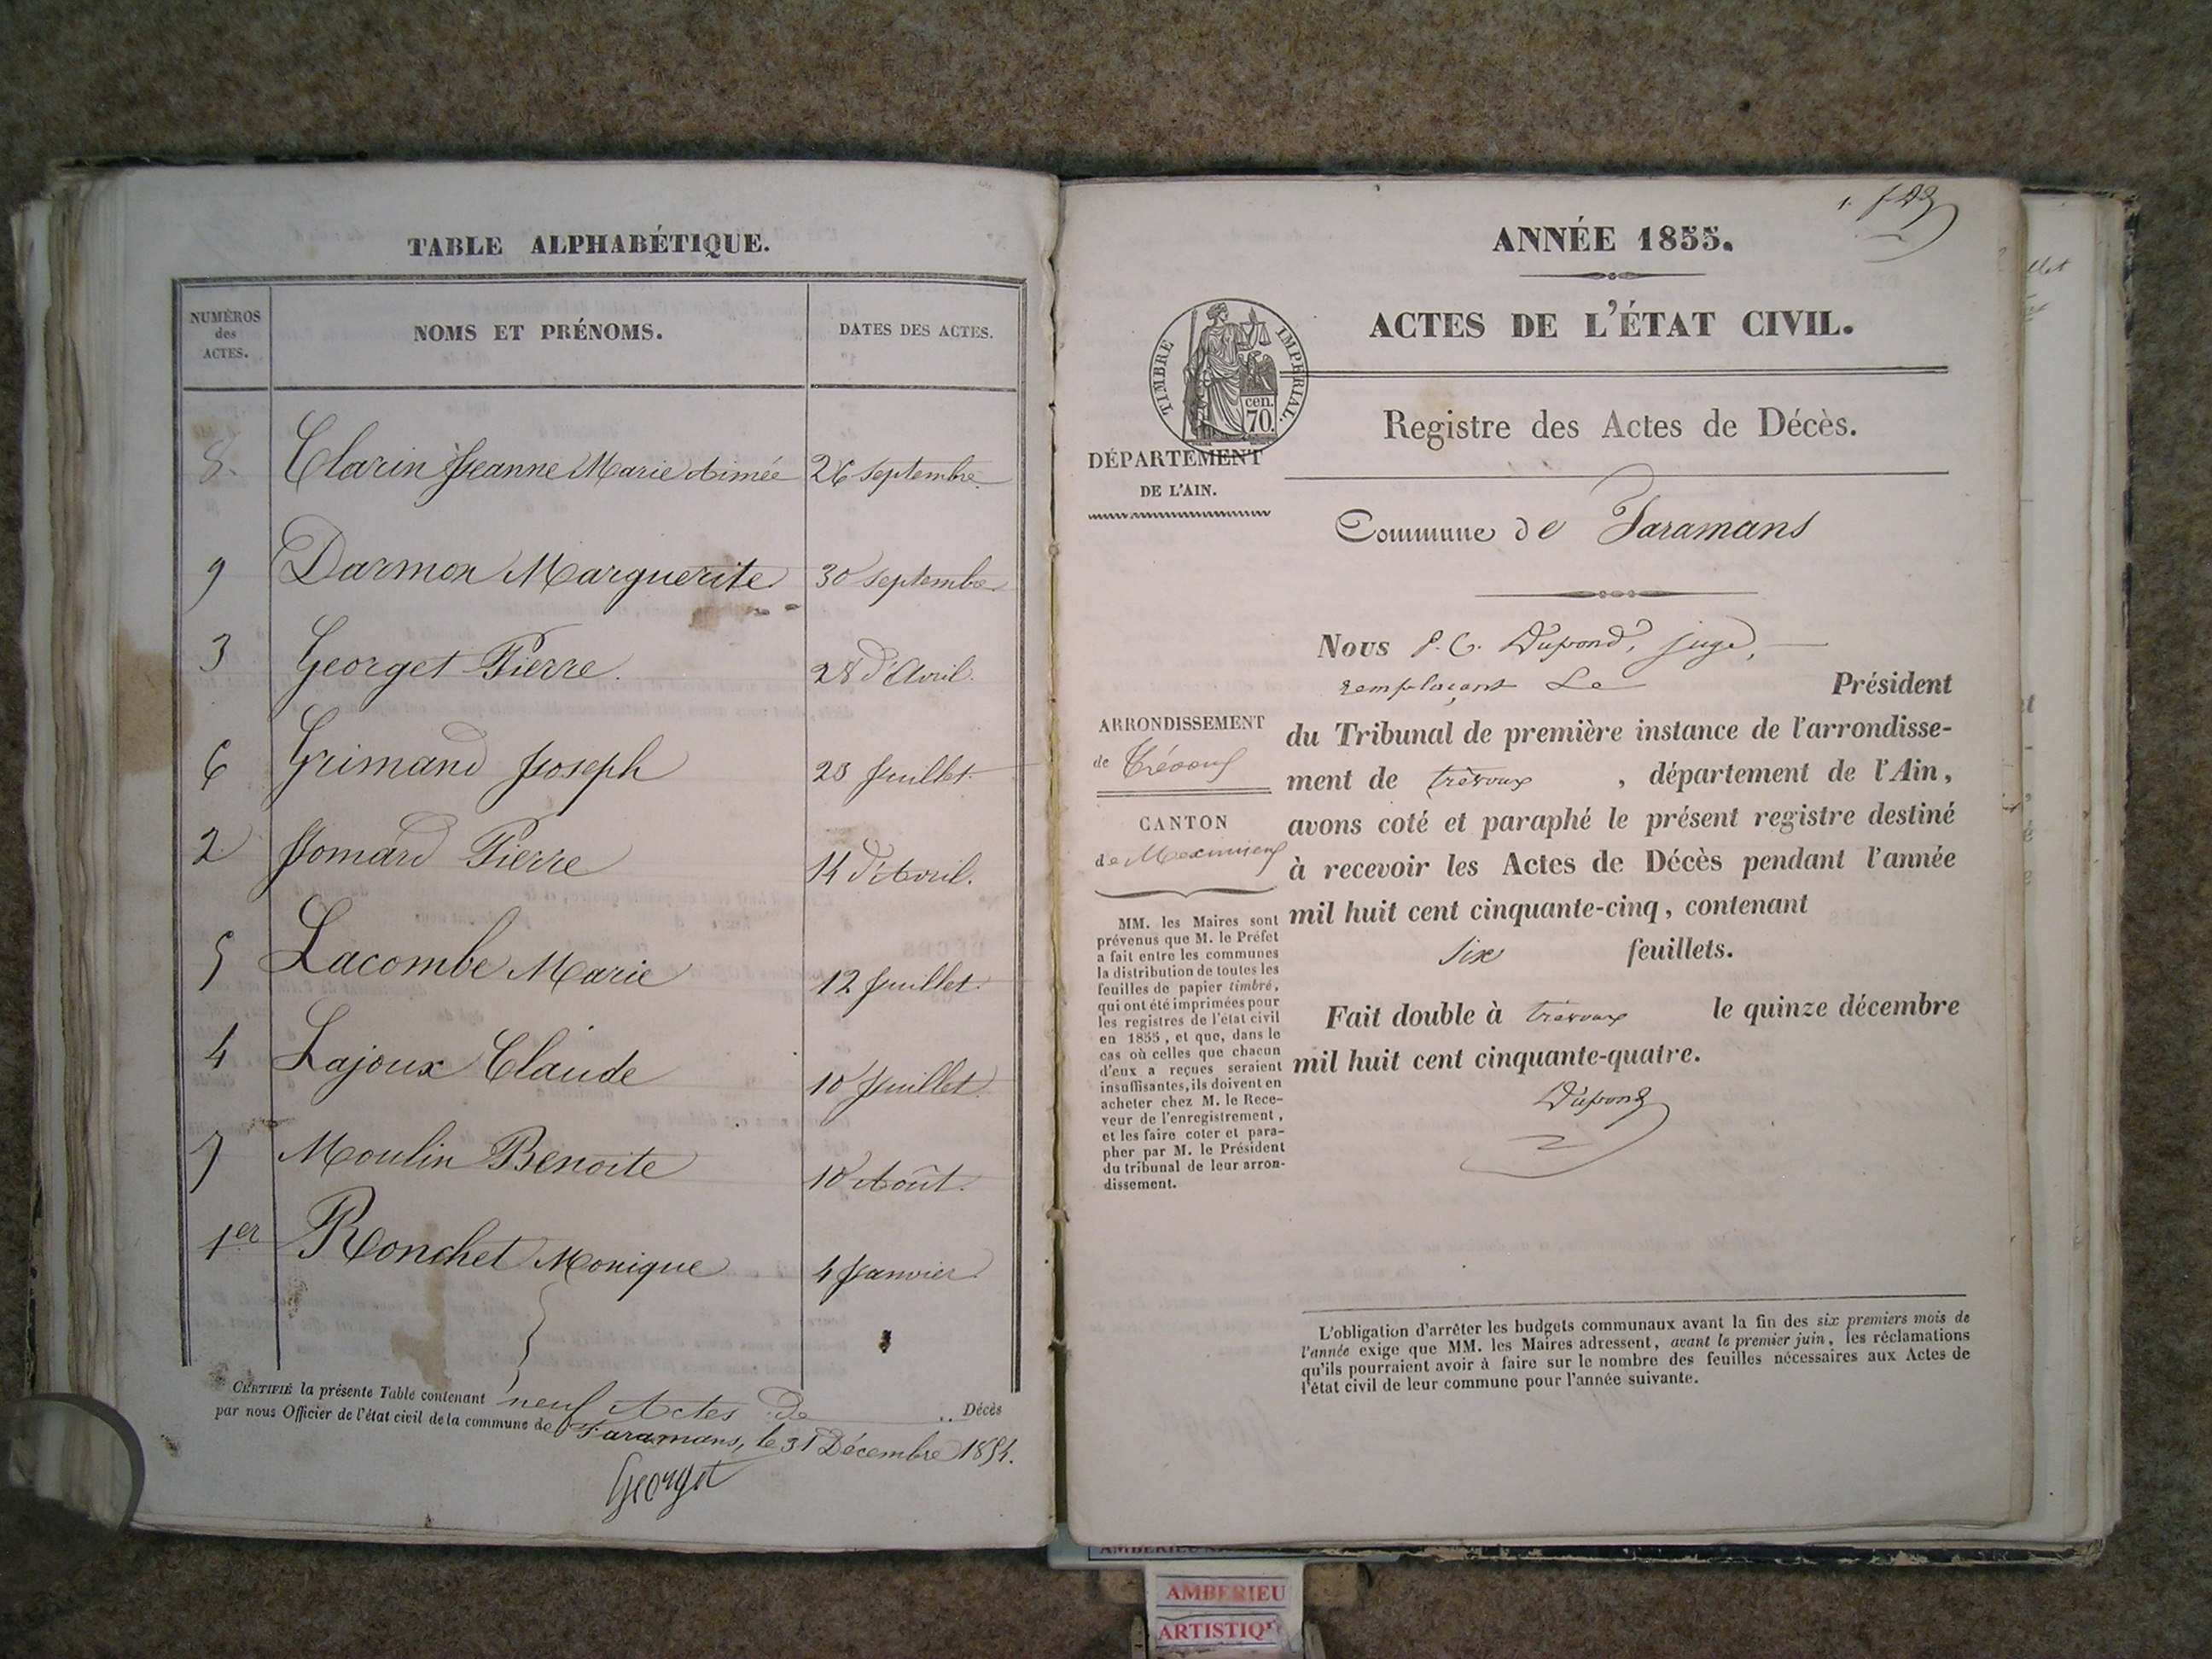 TABLE ALPHABÉTIQUE.
NUMÉROS des ACTES.
NOMS ET PRÉNOMS.
DATES DES ACTES.
8. Clarin Jeanne Marie Aimée 26 septembre
9 Darmon Marguerite 30 septembre
3 Georget Pierre. 28 d'Avril.
6 Grimand Joseph 23 Juillet.
2 Jomard Pierre 14 d'Avril.
5 Lacombe Marie 12 Juillet.
4 Lajoux Claude 10 Juillet
7 Moulin Benoite 10 Août.
1er Ronchet Monique 4 Janvier
CERTIFIÉ la présente Table contenant neuf Actes de Décès
par nous Officier de l'état civil de la commune de Faramans, le 31 Décembre 1854.
Georget
ANNÉE 1855.
ACTES DE L'ÉTAT CIVIL.
TIMBRE IMPERIAL.
cen.
70.
Registre des Actes de Décès.
DÉPARTEMENT
DE L'AIN.
Commune de Faramans
Nous P. C. Dupond, juge,
remplaçant Le Président
du Tribunal de première instance de l'arrondisse-
ment de trévoux , département de l'Ain,
avons coté et paraphé le présent registre destiné
à recevoir les Actes de Décès pendant l'année
mil huit cent cinquante-cinq, contenant
six feuillets.
Fait double à trévoux le quinze décembre
mil huit cent cinquante-quatre.
Dupond
ARRONDISSEMENT
de Trévoux
CANTON
de Meximieux
MM. les Maires sont
prévenus que M. le Préfet
a fait entre les communes
la distribution de toutes les
feuilles de papier timbré,
qui ont été imprimées pour
les registres de l'état civil
en 1855, et que, dans le
cas où celles que chacun
d'eux a reçues seraient
insuffisantes, ils doivent en
acheter chez M. le Rece-
veur de l'enregistrement,
et les faire coter et para-
pher par M. le Président
du tribunal de leur arron-
dissement.
L'obligation d'arrêter les budgets communaux avant la fin des six premiers mois de
l'année exige que MM. les Maires adressent, avant le premier juin, les réclamations
qu'ils pourraient avoir à faire sur le nombre des feuilles nécessaires aux Actes de
l'état civil de leur commune pour l'année suivante.
AMBERIEU
ARTISTIQ